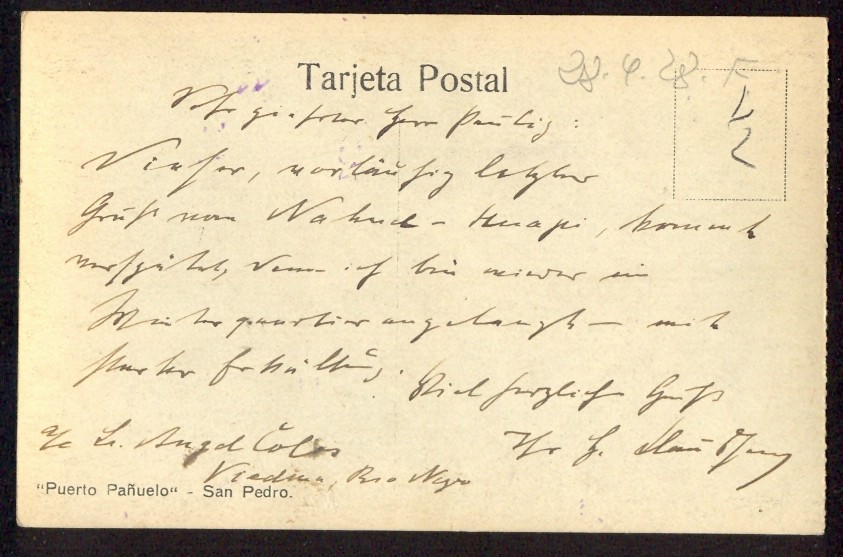 Tarjeta Postal
28.4.28. F
Sehr geehrter Herr Paulig:
Dieser, vorläufig letzter
Gruß vom Nahuel-Huapi, kommt
verspätet, denn ich bin wieder im
Winterquartier angelangt – mit
starker Erkältung.
Viel herzliche Grüße
Ihr
a/c Sr. Angel Colos
Viedma, Rio Negro
"Puerto Pañuelo" - San Pedro.